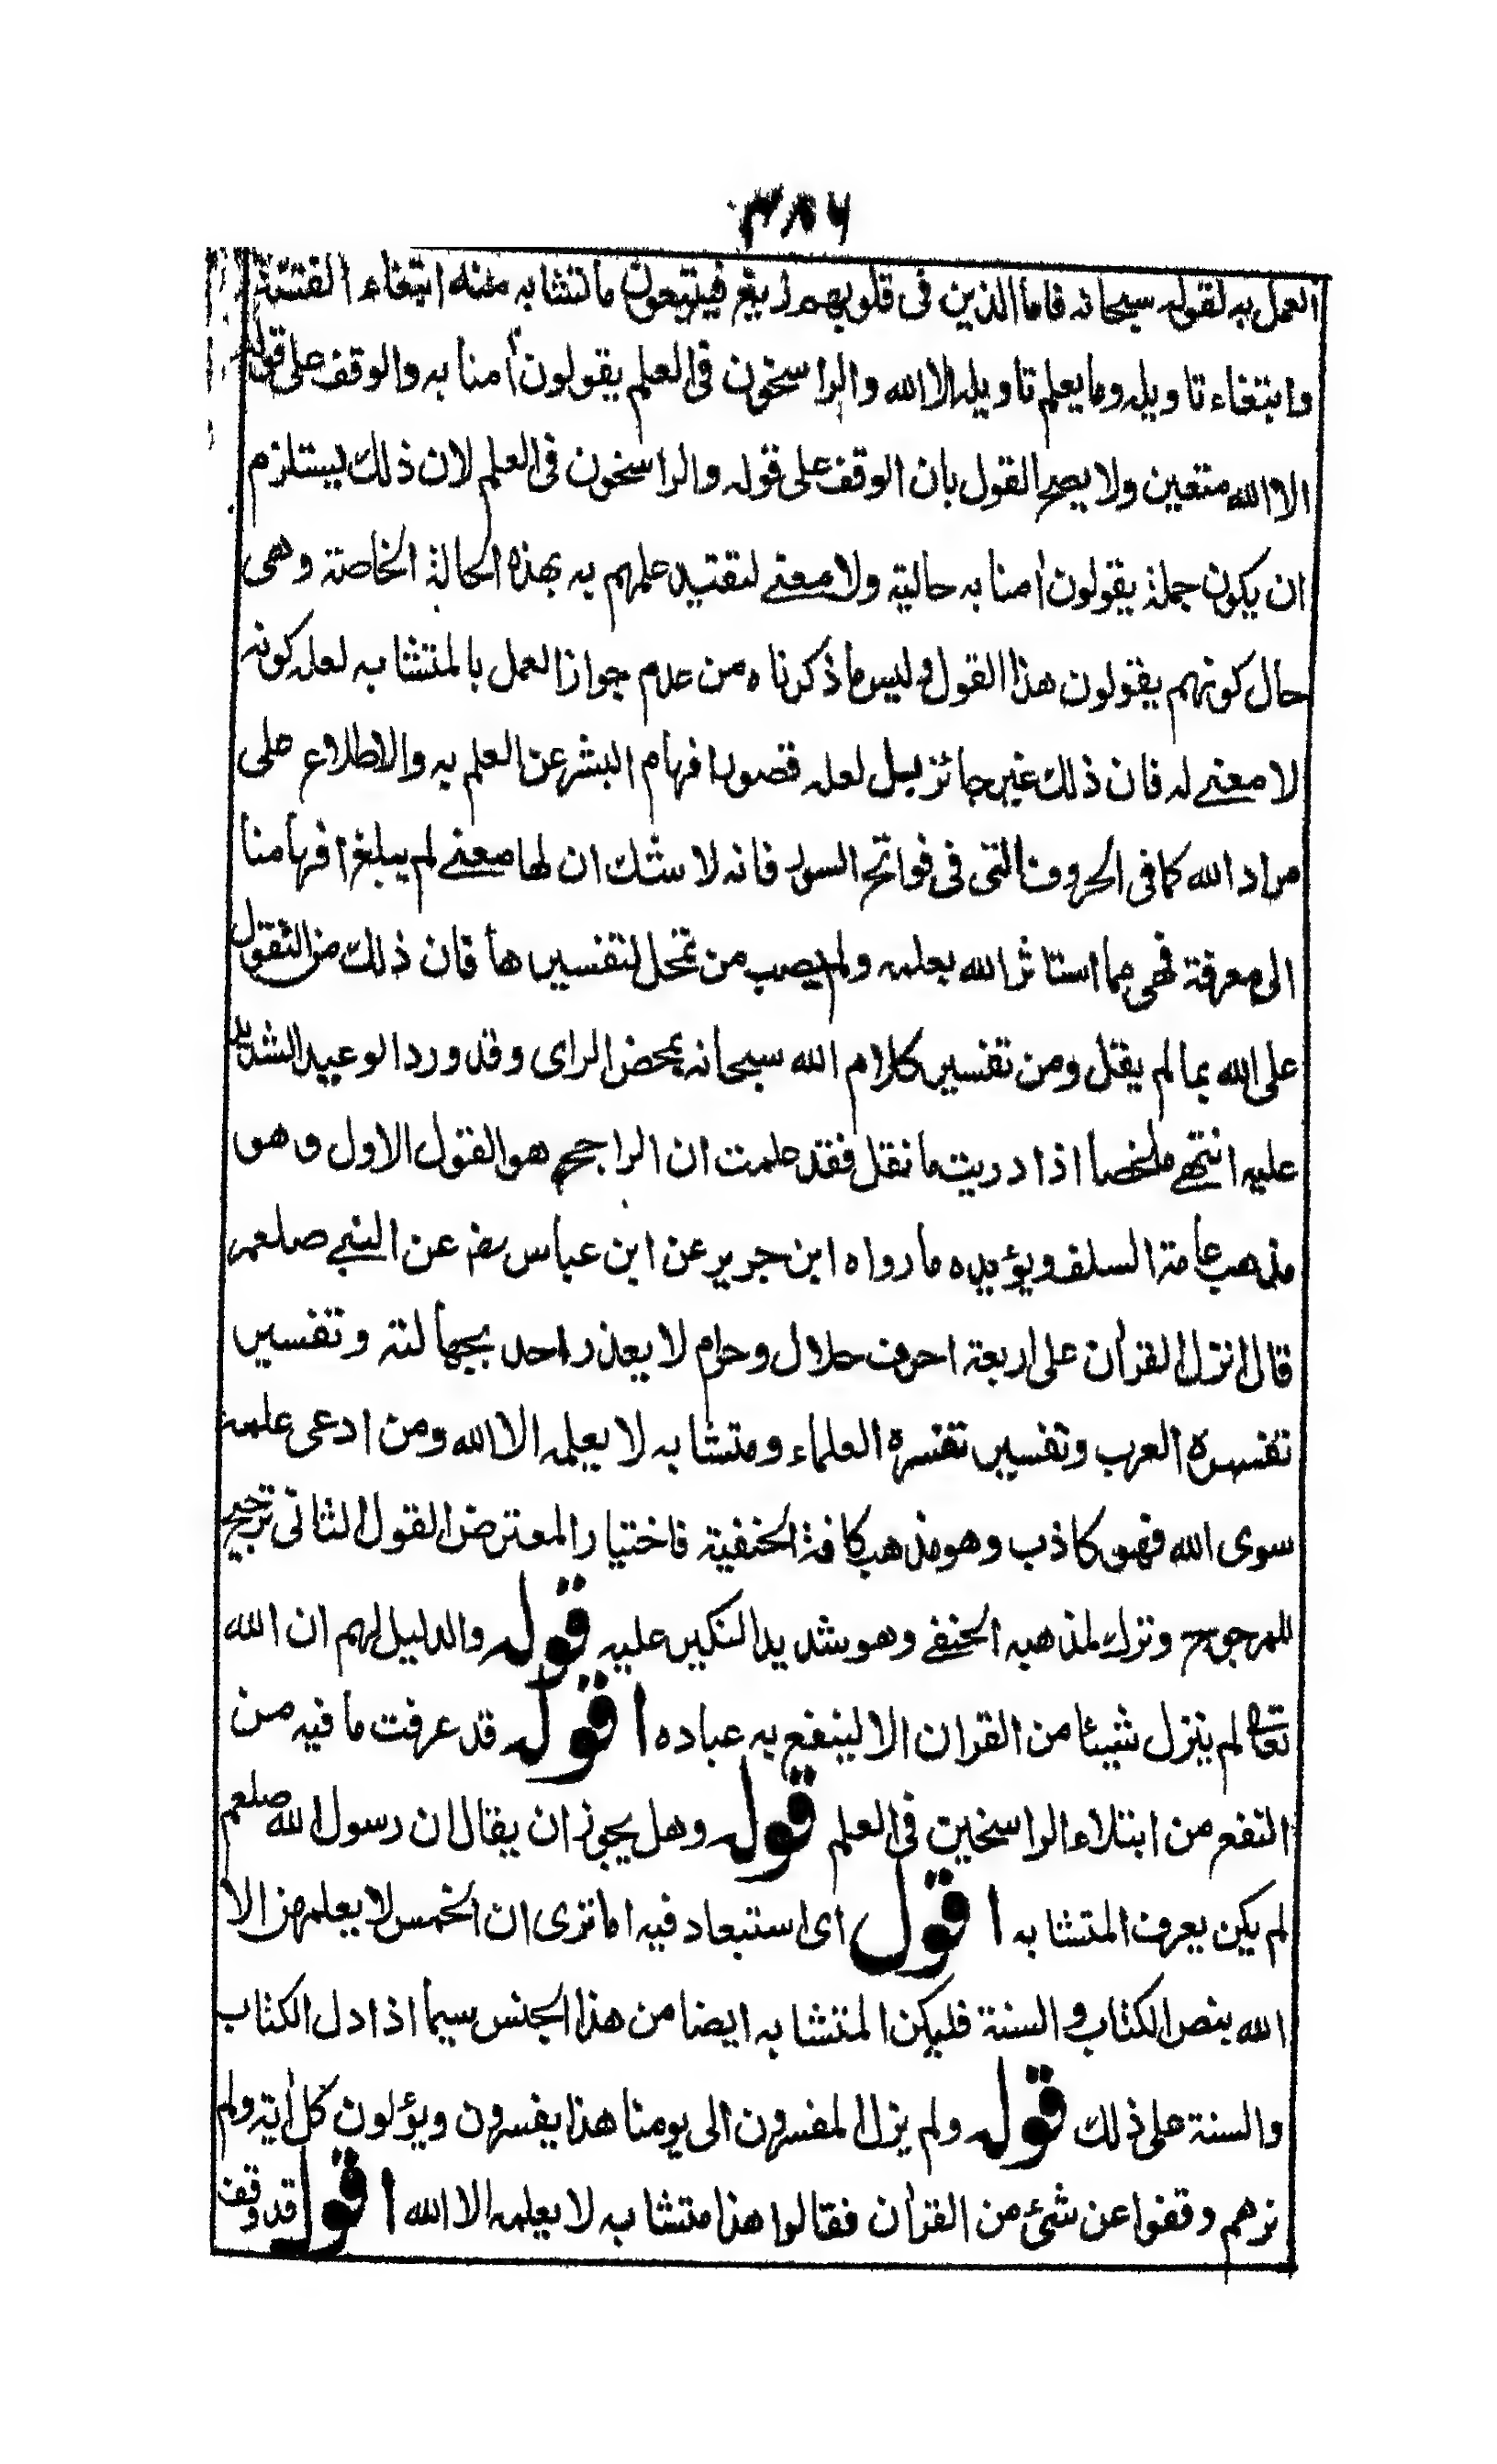 ٣٨٦
العمل به لقوله سبحانه فاما الذين فى قلوبهم زيغ فيتبعون ما تشابه منه ابتغاء الفتنة
وابتغاء تاويله وما يعلم تاويله الا الله والراسخون فى العلم يقولون اٰمنا به والوقف على قوله
الا الله متعين ولا يصح القول بان الوقف على قوله والراسخون فى العلم لان ذلك يستلزم
ان يكون جملة يقولون اٰمنا به حالية ولا معنے لتقتيد علمهم به بهذه الحالة الخاصة وهى
حال كونهم يقولون هذا القول وليس ما ذكرناه من عدم جواز العمل بالمتشابه لعلة كونه
لا معنے له فان ذلك غير جائز بل لعلة قصور افهام البشر عن العلم به والاطلاع على
مراد الله كما فى الحروف التى فى فواتح السور فانه لا شك ان لها معنے لم يبلغ افهامنا
الى معرفة فهى مما استاثر الله بعلمه ولم يصب من تمحل لتفسيرها فان ذلك من التقول
على الله بما لم يقل ومن تفسير كلام الله سبحانه بمحض الراى وقد ورد الوعيد الشديد
عليه انتهے ملخصا اذا دريت ما نقل فقد علمت ان الراجح هو القول الاول وهو
مذهب عامة السلف ويؤيده ما رواه ابن جرير عن ابن عباس رضـ عن النبے صلعم
قال انزل القراٰن على اربعة احرف حلال وحرام لا يعذر احد بجهالته وتفسير
تفسره العرب وتفسير تفسره العلماء ومتشابه لا يعلمه الا الله ومن ادعى علمه
سوى الله فهو كاذب وهو مذهب كافة الحنفية فاختيار المعترض القول الثانى ترجيح
للمرجوح وترك لمذهبه الحنفے وهو شديد النكير عليه قوله والدليل لهم ان الله
تعالٰى لم ينزل شيئا من القراٰن الا لينفع به عباده اقول قد عرفت ما فيه من
النفع من ابتلاء الراسخين فى العلم قوله وهل يجوز ان يقال ان رسول الله صلعم
لم يكن يعرف المتشابه اقول اى استبعاد فيه اما ترى ان الخمس لا يعلمهن الا
الله بنص الكتاب والسنة فليكن المتشابه ايضا من هذا الجنس سيما اذا دل الكتاب
والسنة على ذلك قوله ولم يزل المفسرون الى يومنا هذا يفسرون ويؤلون كل اٰية ولم
نرهم وقفوا عن شئ من القراٰن فقالوا هذا متشابه لا يعلمه الا الله اقول قد وقف